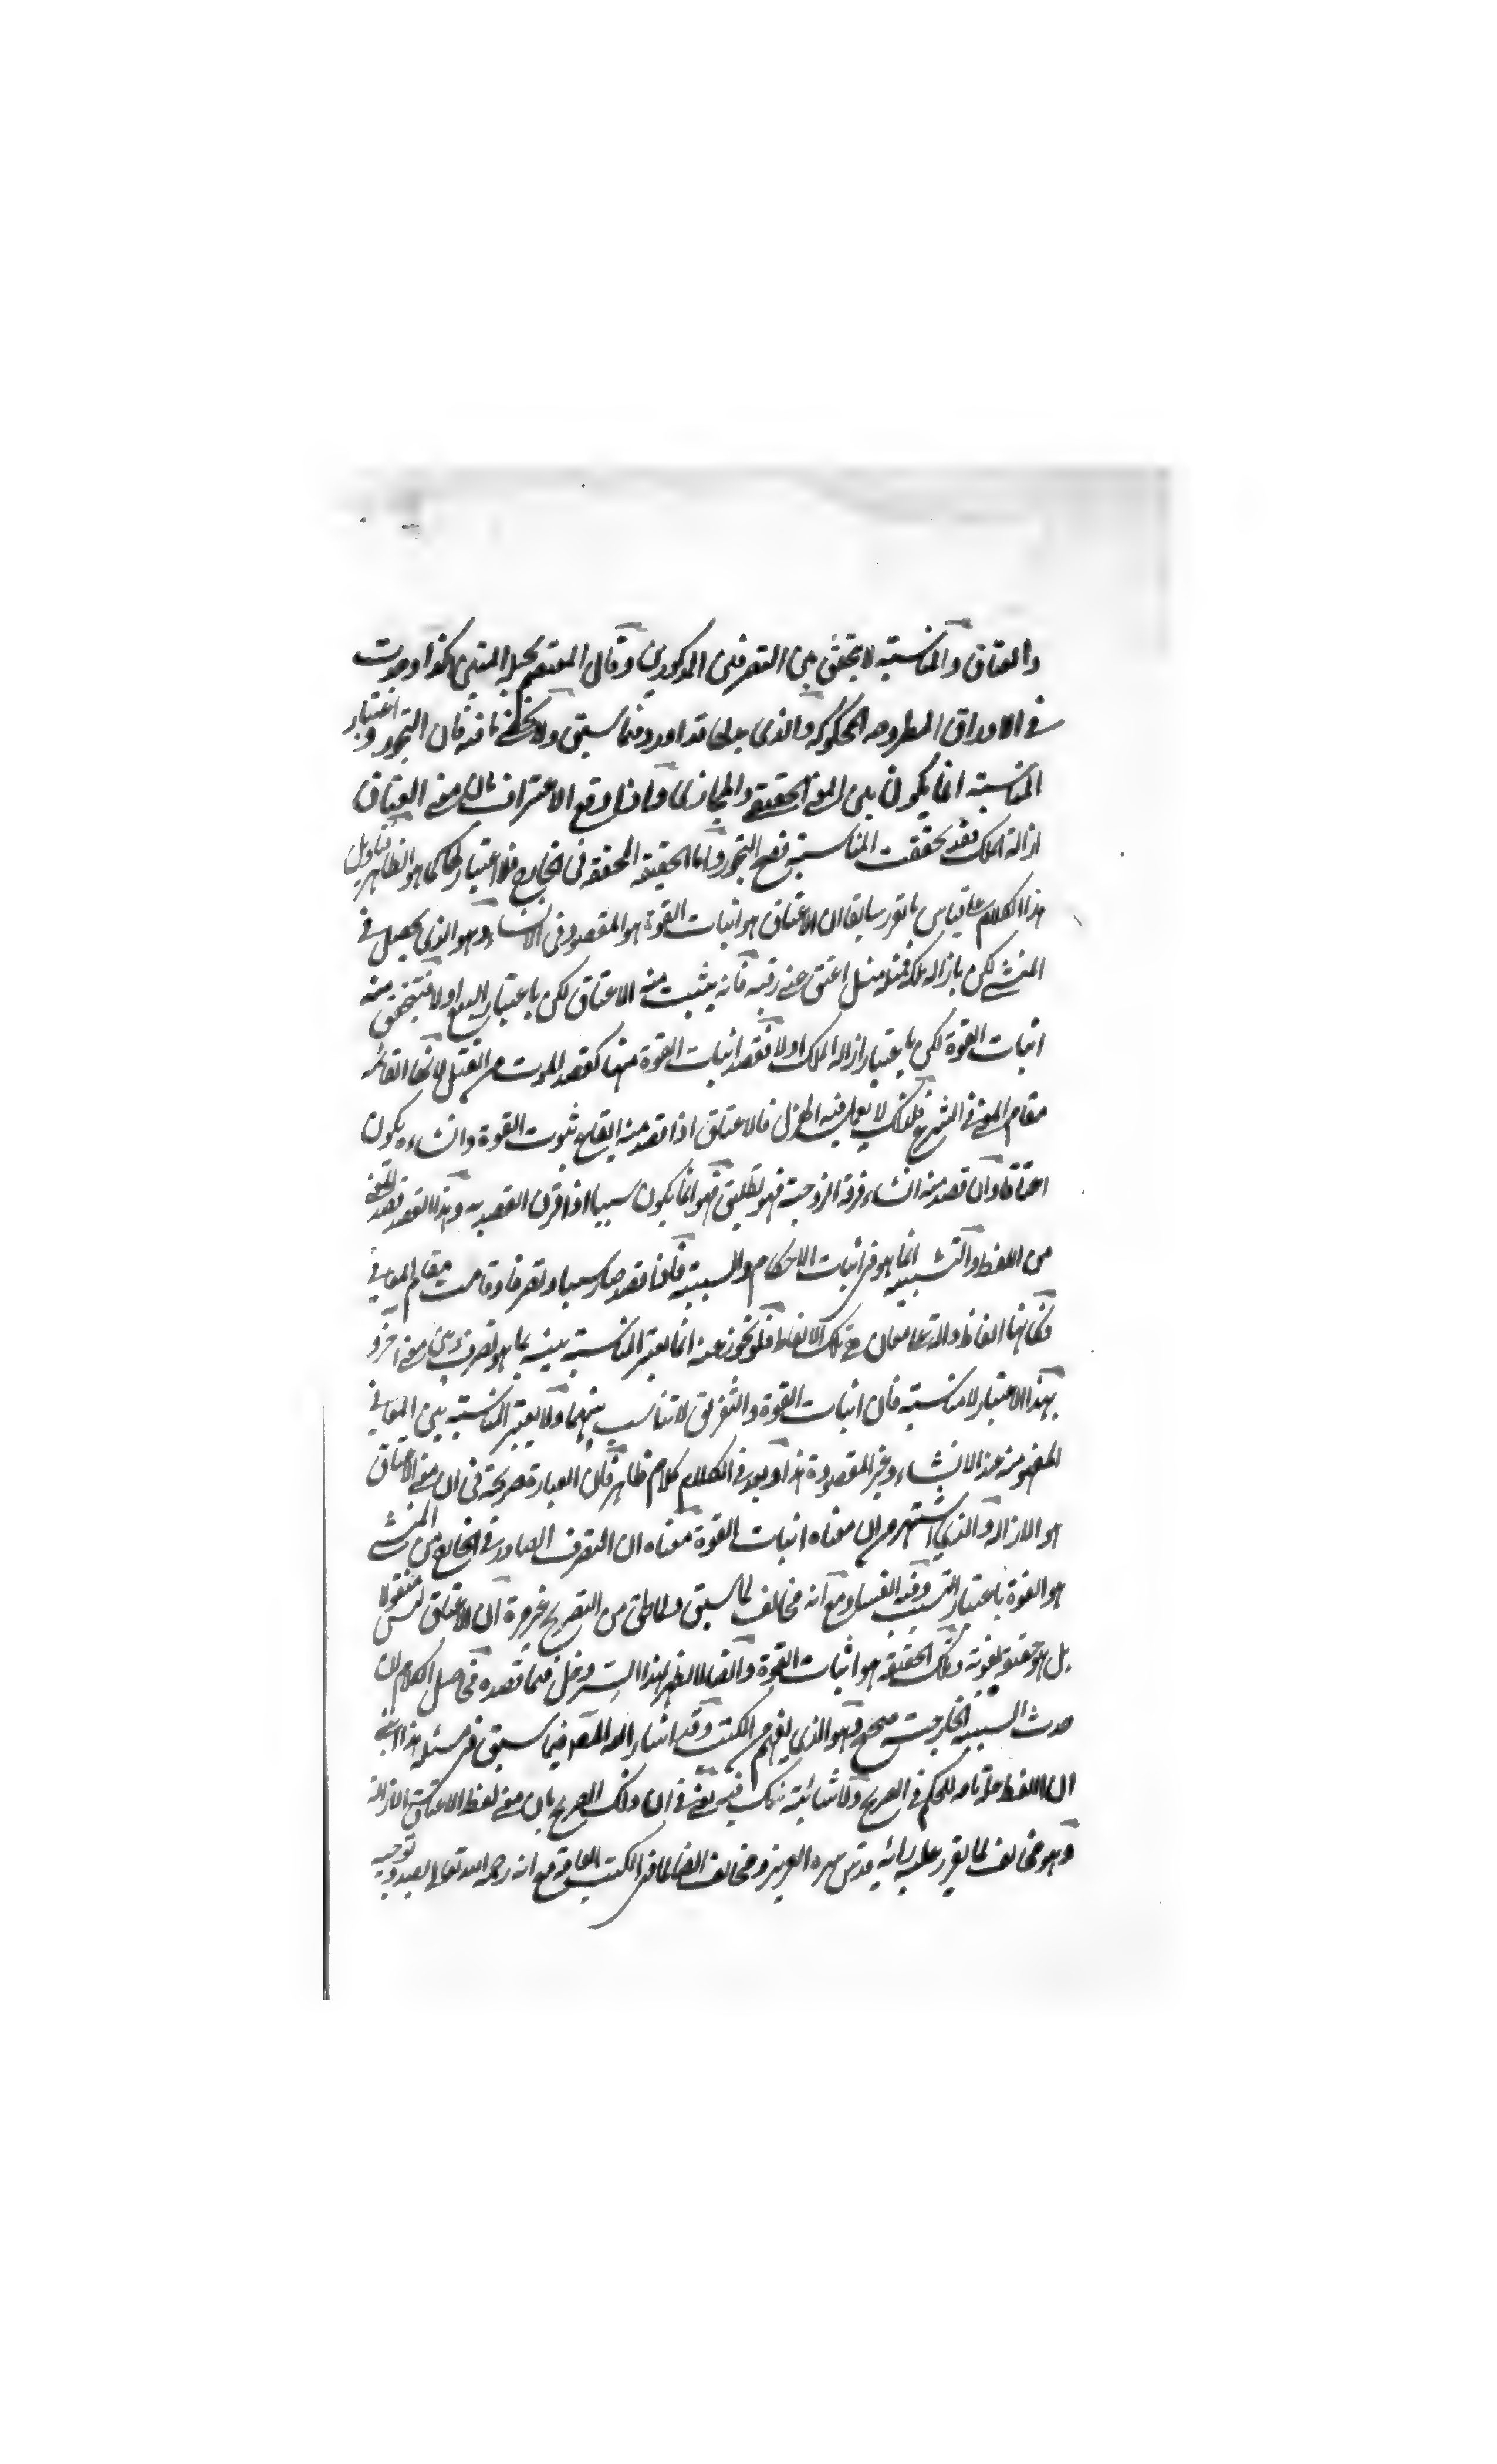 والعتاق والمناسبة لا تتحقق بين التصرفين المذكورين وقال المعتصم بحبل المتين كذا وجدت
في الاوراق المطروحة المحكوكة والذي بدلها قد اورد فيما سبق ولا يخفى ما فيه فان التجوز واعتبار
المناسبة انما يكون بين المعنى الحقيقي والمجازي واذا وقع الاعتراف بان معنى العتاق
ازالة الملك فقد تحققت المناسبة فصح التجوز واما الحقيقة المحققة في الخارج فلا اعتبار لها كما هو الظاهر وتاويل
هذا الكلام على قياس ما تقرر سابقا ان الاعتاق هو اثبات القوة هو المقصود في الانشاء وهو الذي يحصل في
المنشئ لكن بازالة ملكه مثل اعتق عني رقبة فانه يثبت منه الاعتاق لكن باعتبار البيع اولا فيتحقق منه
اثبات القوة لكن باعتبار ازالة الملك اولا فقصد اثبات القوة منها كقصد الموت من القتل لانها القائمة
مقام المعنى في الشرع فلذلك لا يعمل فيه الهزل فالاعتاق اذا قصد منه ايقاع ثبوت القوة وانشاءه يكون
اعتاقا وان قصد منه انشاء فرقة الزوجية فهو تطليق فهو انما يكون سببا اذا قرن القصد به وهذا القصد قصد المعنى
من اللفظ والتشبيه انما هو في اثبات الاحكام والسببية فاذا قصد صار سببا وتصرفا وقامت مقام المعاني
فكانها الفاظ دالة على معان هي تلك الالفاظ فلو تجوز عنه انما يعتبر المناسبة بينه بما هو تصرف وبين معنى اخر و
بهذا الاعتبار لا مناسبة فان اثبات القوة والتفريق لا تناسب بينهما ولا يعتبر المناسبة بين المعاني
المفهومة عند الانشاء وغير المقصودة هذا وبعد في الكلام كلام ظاهر فان العبارة صريحة في ان معنى الاعتاق
هو الازالة والذي اشتهر من ان معناه اثبات القوة معناه ان التصرف الصادر في الخارج من المنشئ
هو القوة باعتبار التسبب وفيه الفساد مع انه مخالف لما سبق ولما حقق من التصريح ضرورة ان الاعتاق ليس منقولا
بل هو حقيقة لغوية وتلك الحقيقة هو اثبات القوة وايضا لا يظهر لهذا السر دخل فيما قصده فحاصل الكلام ان
حدث السببية الخارجية صحيح وهو الذي يفهم من الكتب وقد اشار اليه المصنف فيما سبق في مسئلة هذا ابني
ان اللفظ علة تامة للحكم في الصريح ولا شائبة شك فيه يعني في ان ذلك الصريح بان معنى لفظ الاعتاق الازالة
وهو مخالف لما يقرر عليه رائه قدس سره العزيز ومخالف ايضا لما في الكتب العامة مع انه رحمه الله تعالى بصدد توجيه